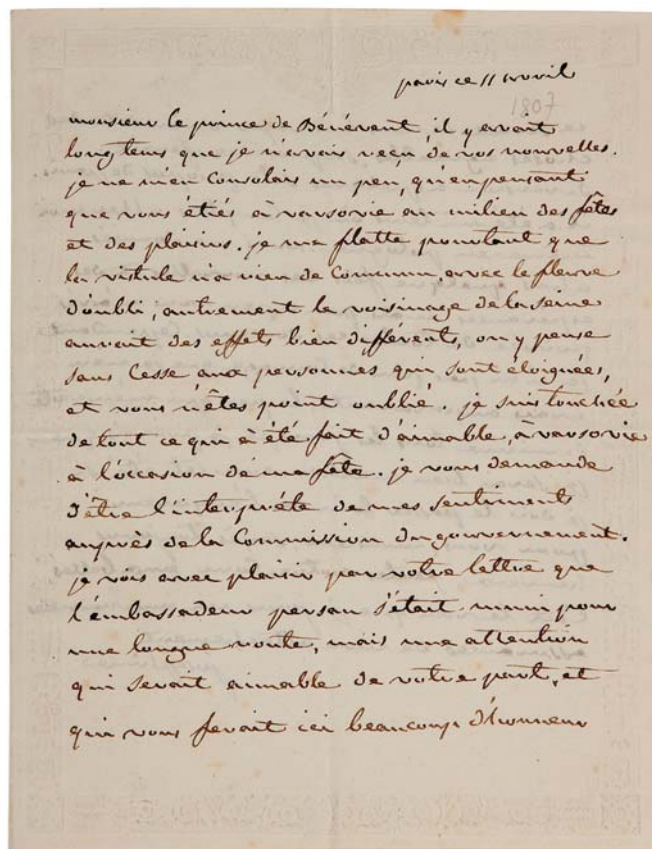 paris ce 11 avril
1807
monsieur le prince de Bénévent, il y avait
longtems que je n'avais reçu de vos nouvelles.
je ne m'en consolais un peu, qu'en pensant
que vous étiés à varsovie au milieu des fêtes
et des plaisirs. je me flatte pourtant que
la vistule n'a rien de commun, avec le fleuve
d'oubli; autrement le voisinage de la seine
aurait des effets bien différents, on y pense
sans cesse aux personnes qui sont éloignées,
et vous n'êtes point oublié. je suis touchée
de tout ce qui à été fait d'aimable, à varsovie
à l'occasion de ma fête. je vous demande
d'être l'interprète de mes sentiments
auprès de la Commission du gouvernement.
je vois avec plaisir par votre lettre que
l'embassadeur persan s'était muni pour
une longue route, mais une attention
qui serait aimable de votre part, et
qui vous ferait ici beaucoup d'honneur